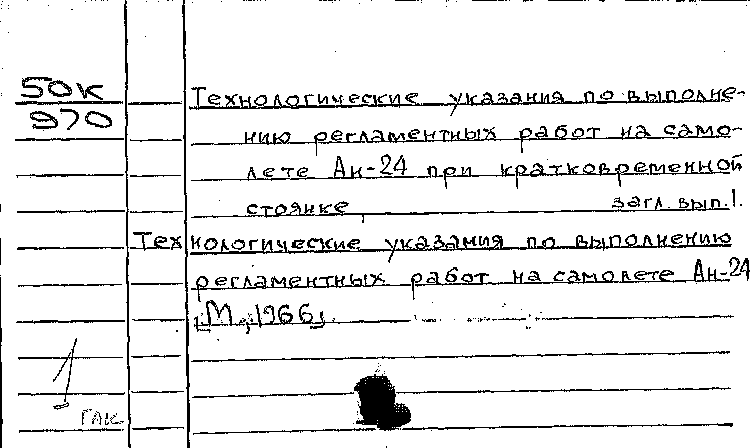 50к
970
Технологические указания по выполне-
нию регламентных работ на само-
лете Ан-24 при кратковременной
стоянке загл. вып. 1.
Технологические указания по выполнению
регламентных работ на самолете Ан-24
[М., 1966].
1
ГАК